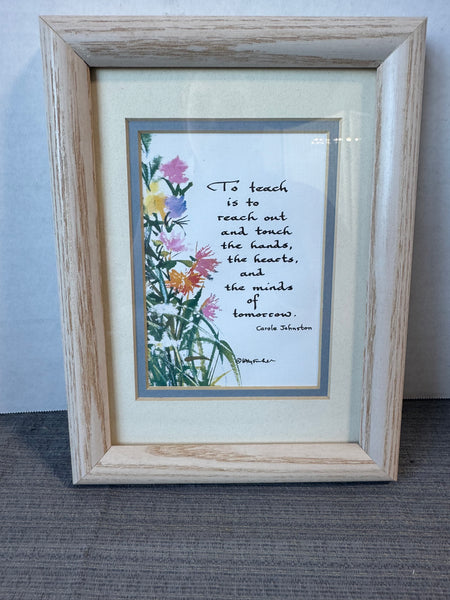 To teach
is to
reach out
and touch
the hands,
the hearts,
and
the minds
of
tomorrow.
Carole Johnston